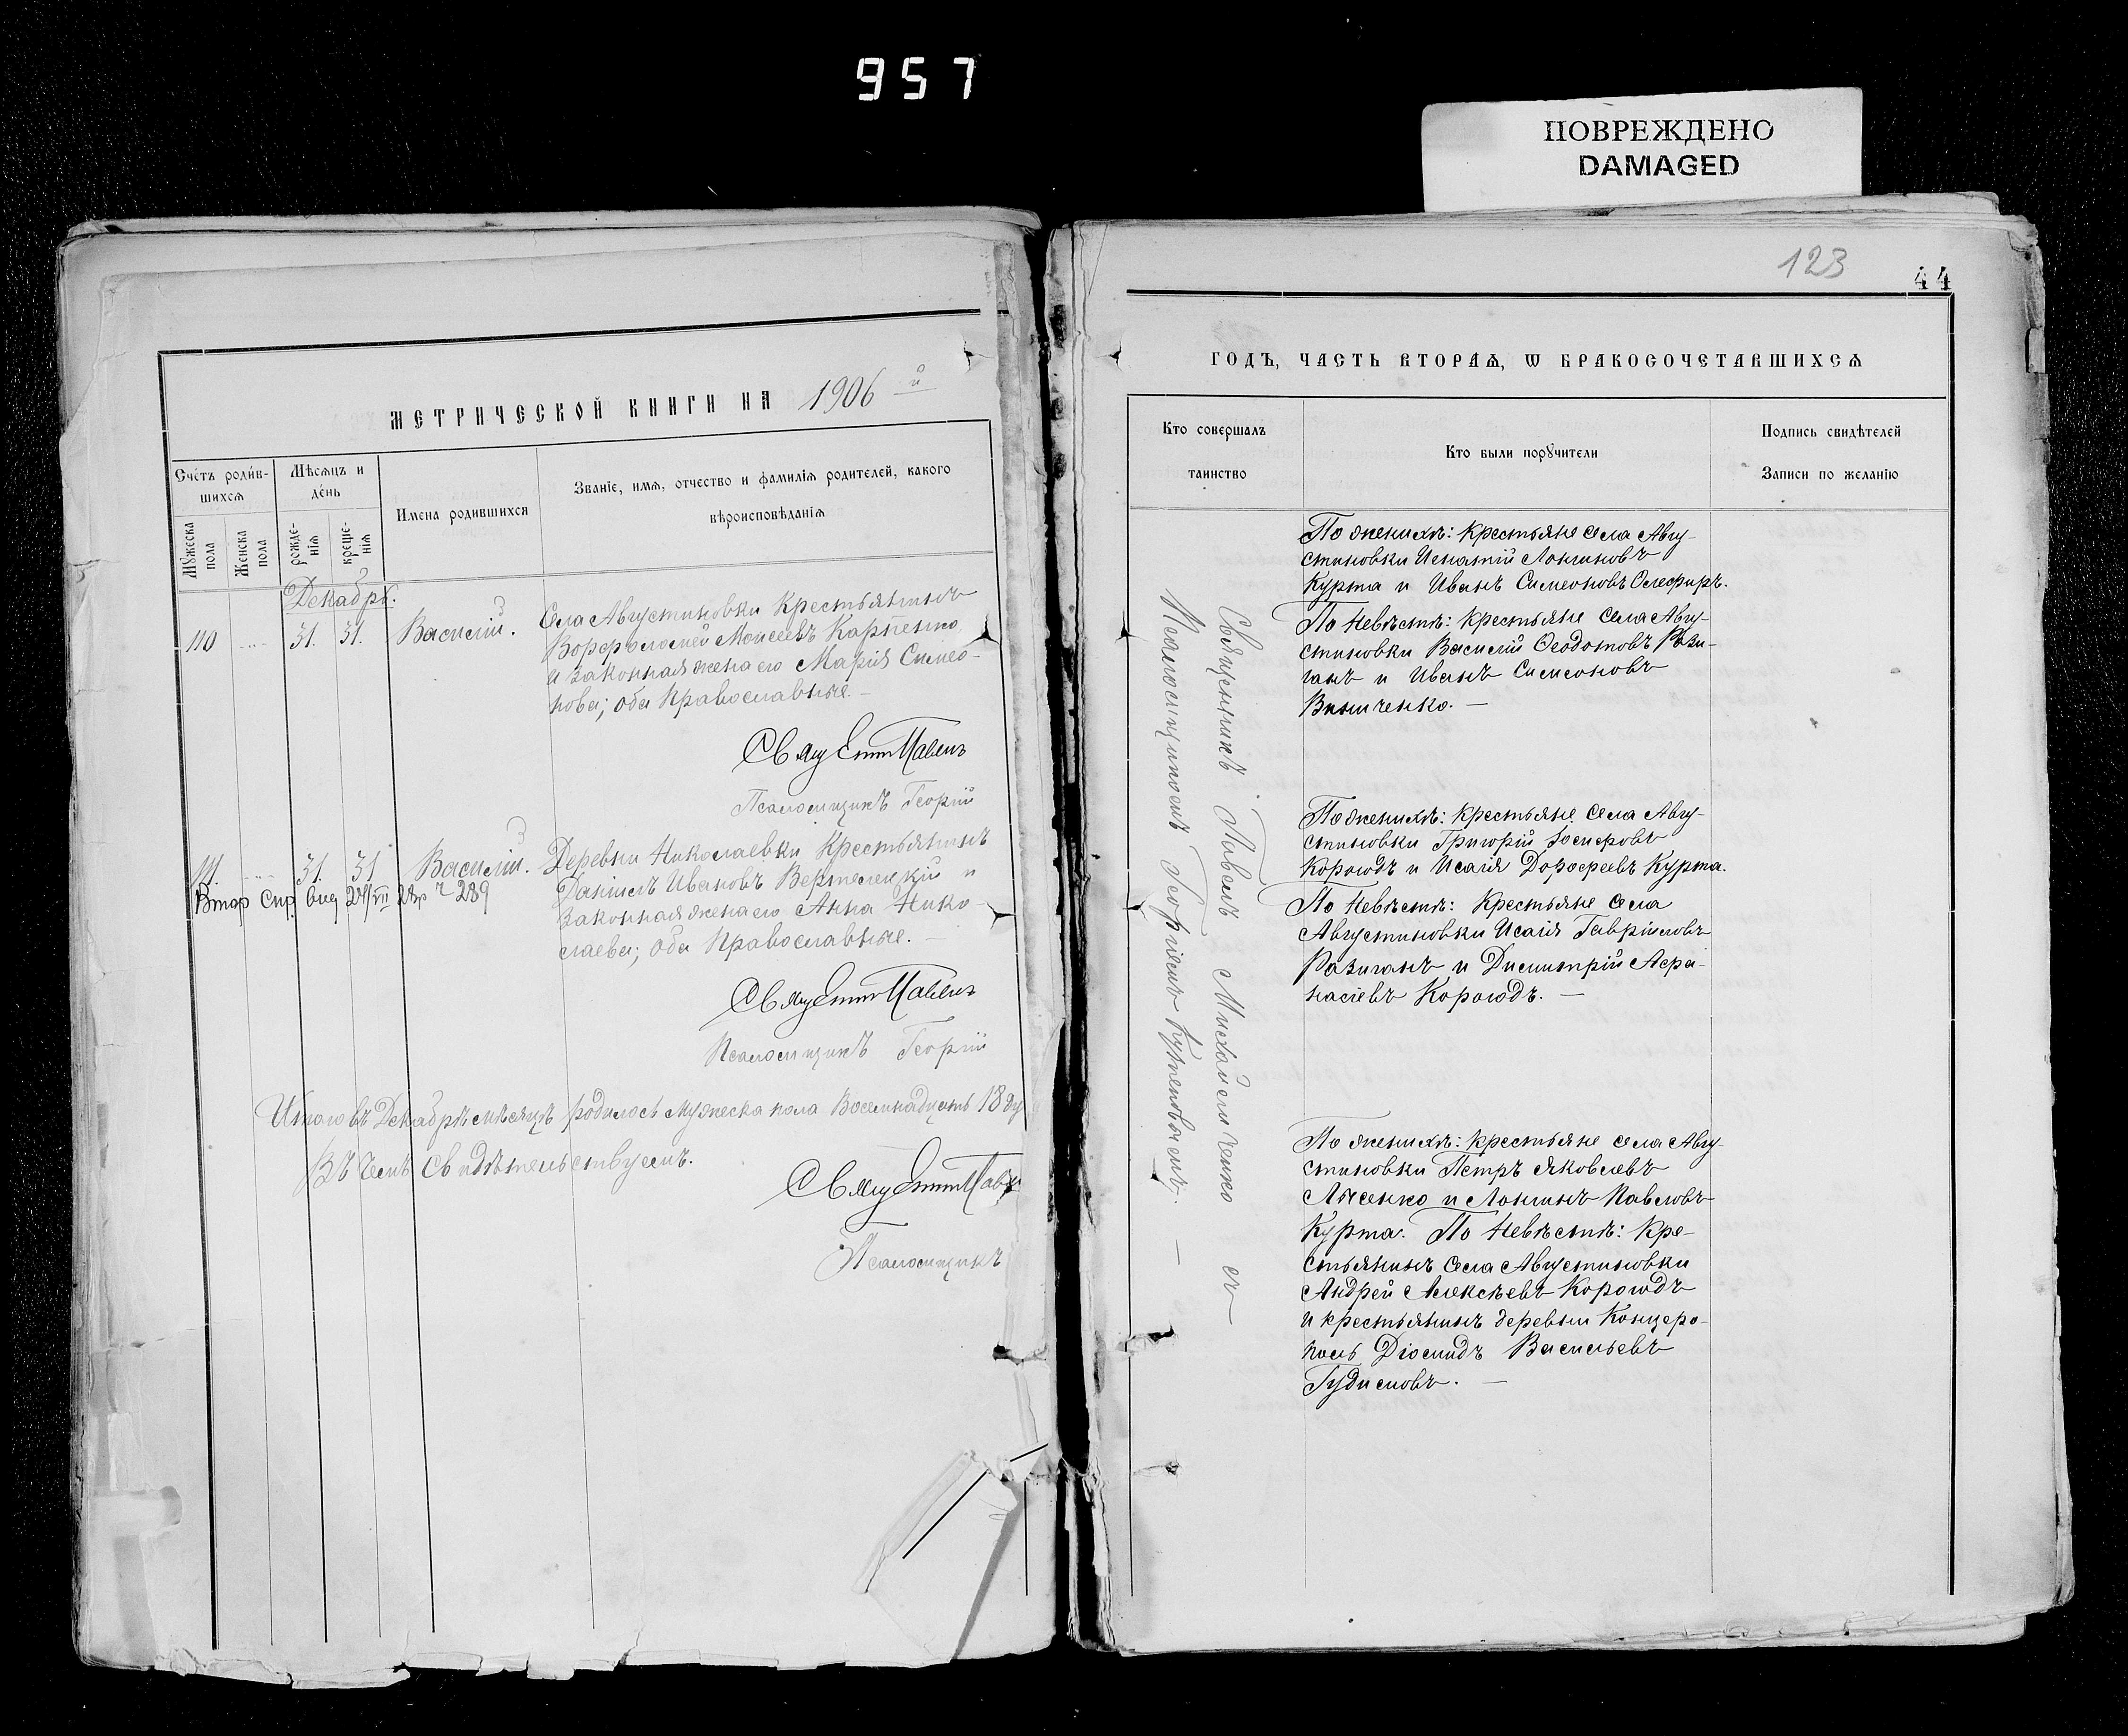 957
ПОВРЕЖДЕНО
DAMAGED
МЕТРИЧЕСКОЙ КНИГИ НА 1906 й
Счетъ родив-
шихсѧ
Мѣсѧцъ и
день
Имена родившихсѧ
Званіе, имѧ, отчество и фамиліѧ родителей, какого
вѣроисповѣданіѧ
Мужеска
пола
Женска
пола
рожде-
ніѧ
креще-
ніѧ
Декабрь.
110 31. 31. Василій.
Села Августиновки Крестьянинъ
Ворфоломей Моисеевъ Карпенко
и законная жена его Марія Симео-
нова; оба Православные. —
Свящ
Псаломщикъ Георгій
111. 31. 31 Василій.
Втор Спр. выд 24/VII 28р Ч 289
Деревни Николаевки Крестьянинъ
Даніилъ Ивановъ Вертелецкій и
законная жена его Анна Нико-
лаева; оба Православные. —
Свящ
Псаломщикъ Георгій
Итого въ Декабрѣ мѣсяцѣ родилось мужеска пола Восемнадцать 18 ду
Въ чемъ свидѣтельствуемъ.
Свящ
Псаломщикъ
123
44
ГОДЪ, ЧАСТЬ ВТОРАѦ, Ѡ БРАКОСОЧЕТАВШИХСѦ
Кто совершалъ
таинство
Кто были поручители
Подпись свидѣтелей
Записи по желанію
Священникъ Павелъ Михайличенко съ
Псаломщикомъ Георгіемъ
По женихѣ: Крестьяне села Авгу-
стиновки Игнатій Лонгиновъ
Курта и Иванъ Симеоновъ Олефиръ.
По Невѣстѣ: Крестьяне Села Авгу-
стиновки Василій Ѳеодотовъ Рази-
ганъ и Иванъ Симеоновъ
Винниченко. —
По женихѣ: Крестьяне Села Авгу-
стиновки Григорій Іосифовъ
Корогодъ и Исаія Дорофеевъ Курта.
По Невѣстѣ: Крестьяне Села
Августиновки Исаія Гавріиловъ
Разиганъ и Димитрій Афа-
насіевъ Корогодъ. —
По женихѣ: Крестьяне села Авгу-
стиновки Петръ Яковлевъ
Лысенко и Лонгинъ Павловъ
Курта. По Невѣстѣ: Кре-
стьянинъ Села Августиновки
Андрей Алексѣевъ Корогодъ
и крестьянинъ деревни Канцеро-
поль Діомидъ Васильевъ
Гудимовъ. —